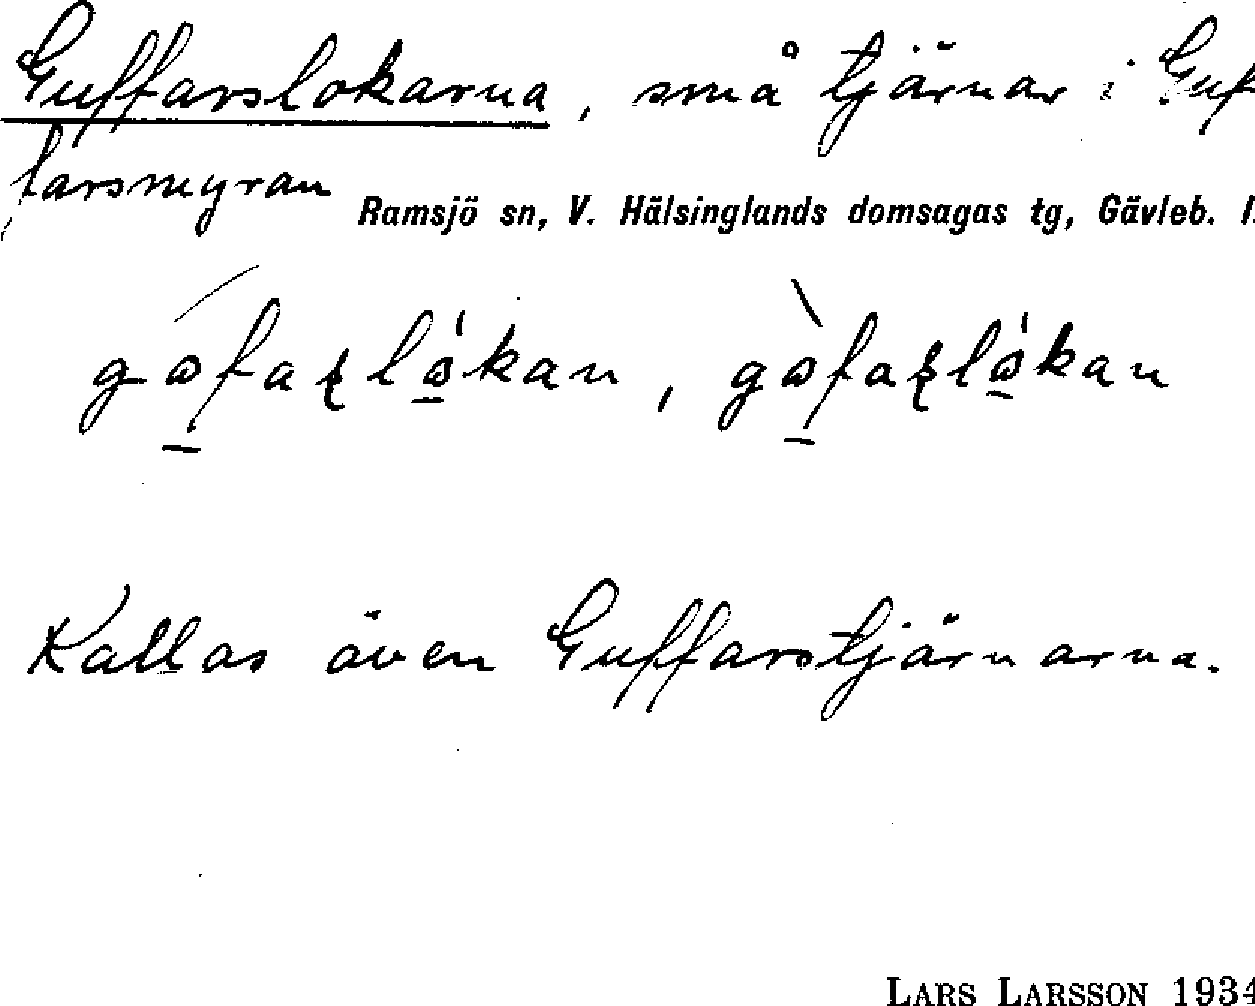 Guffarslokarna, små tjärnar i Guf
farsmyran
Ramsjö sn, V. Hälsinglands domsagas tg, Gävleb. l.
Kallas även Guffarstjärnarna.
LARS LARSSON 1934